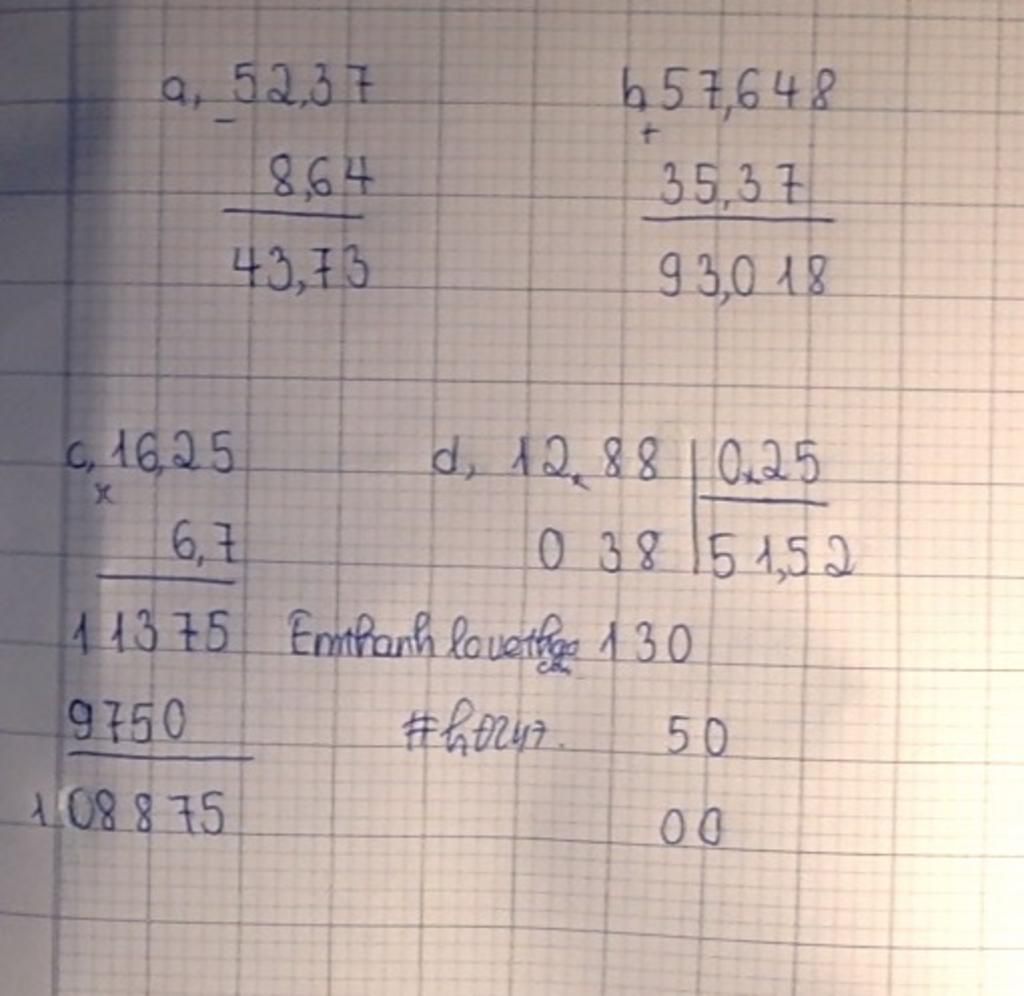 a, 52,37 b, 57,648
- +
8,64 35,37
43,73 93,018
c, 16,25 d, 12,88 0,25
x
6,7 0 38 51,52
11375 130
9750 50
108875 00